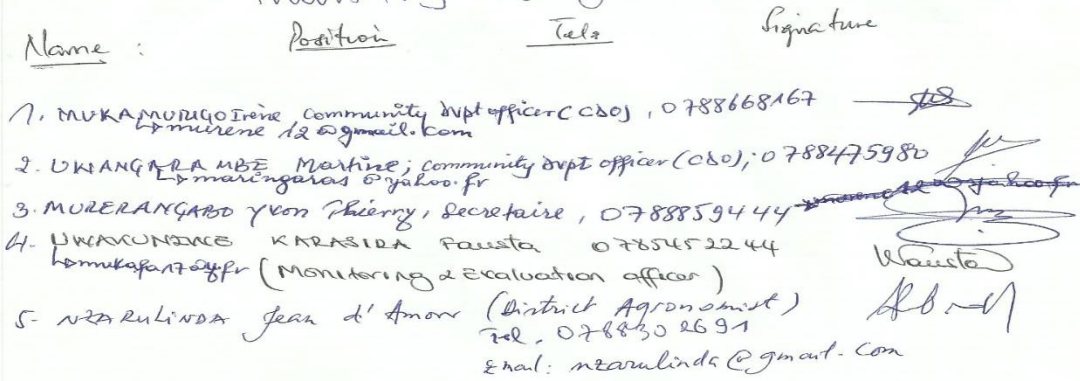 Name : Position Tel: Signature
1. MUKAMURIGO Irène Community dvpt officer (CDO), 0788668167
murene 12@gmail.com
2. UWANGARAMBE Martine; community dvpt officer (CDO); 0788475980
maringaras@yahoo.fr
3. MURERANGABO Yvon Thierry, Secretaire, 0788859444
4- UWAKUNDWE KARASIRA Fausta 0785452244
(Monitoring & Evaluation officer)
5- NZARULINDA Jean d'Amour (District Agronomist)
Tel. 078830 2691
Email: nzarulinda@gmail.com